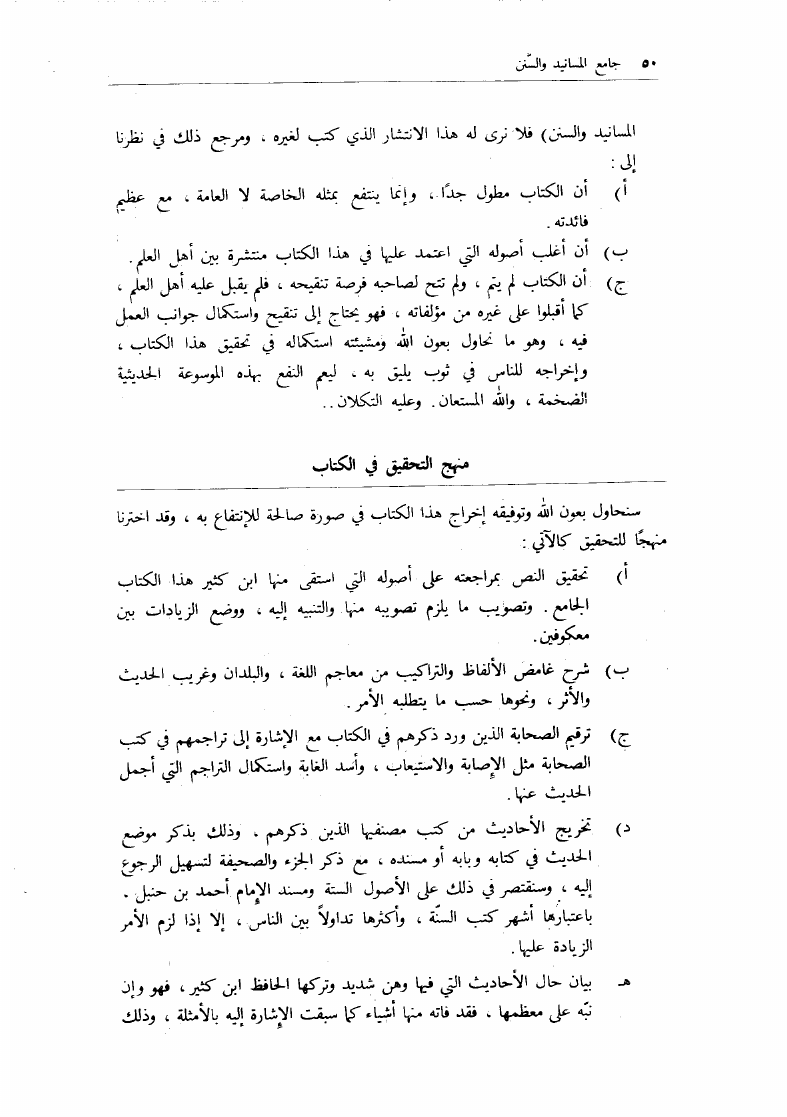 ٥٠ جامع المسانيد والسُّنن
المسانيد والسنن) فلا نرى له هذا الانتشار الذي كتب لغيره ، ومرجع ذلك في نظرنا
إلى :
أ) أن الكتاب مطول جدًا ، وإنما ينتفع بمثله الخاصة لا العامة ، مع عظيم
فائدته .
ب) أن أغلب أصوله التي اعتمد عليها في هذا الكتاب منتشرة بين أهل العلم .
ج) أن الكتاب لم يتم ، ولم تتح لصاحبه فرصة تنقيحه ، فلم يقبل عليه أهل العلم ،
كما أقبلوا على غيره من مؤلفاته ، فهو يحتاج إلى تنقيح واستكمال جوانب العمل
فيه ، وهو ما نحاول بعون الله ومشيئته استكماله في تحقيق هذا الكتاب ،
وإخراجه للناس في ثوب يليق به ، ليعم النفع بهذه الموسوعة الحديثية
الضخمة ، والله المستعان . وعليه التكلان ..
منهج التحقيق في الكتاب
سنحاول بعون الله وتوفيقه إخراج هذا الكتاب في صورة صالحة للإنتفاع به ، وقد اخترنا
منهجًا للتحقيق كالآتي :
أ) تحقيق النص بمراجعته على أصوله التي استقى منها ابن كثير هذا الكتاب
الجامع . وتصويب ما يلزم تصويبه منها والتنبيه إليه ، ووضع الزيادات بين
معكوفين .
ب) شرح غامض الألفاظ والتراكيب من معاجم اللغة ، والبلدان وغريب الحديث
والأثر ، ونحوها حسب ما يتطلبه الأمر .
ج) ترقيم الصحابة الذين ورد ذكرهم في الكتاب مع الإشارة إلى تراجمهم في كتب
الصحابة مثل الإصابة والاستيعاب ، وأسد الغابة واستكمال التراجم التي أجمل
الحديث عنها .
د) تخريج الأحاديث من كتب مصنفيها الذين ذكرهم . وذلك بذكر موضع
الحديث في كتابه وبابه أو مسنده ، مع ذكر الجزء والصحيفة لتسهيل الرجوع
إليه ، وسنقتصر في ذلك على الأصول الستة ومسند الإمام أحمد بن حنبل .
باعتبارها أشهر كتب السنّة ، وأكثرها تداولاً بين الناس ، إلا إذا لزم الأمر
الزيادة عليها .
هـ بيان حال الأحاديث التي فيها وهن شديد وتركها الحافظ ابن كثير ، فهو وإن
نبّه على معظمها ، فقد فاته منها أشياء كما سبقت الإشارة إليه بالأمثلة ، وذلك